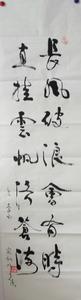 長風破浪會有時
直挂雲帆济蒼海